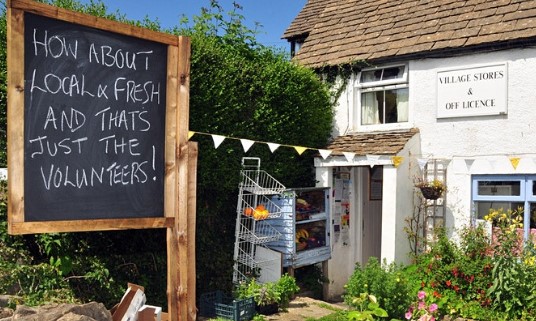 HOW ABOUT
LOCAL & FRESH
AND THATS
JUST THE
VOLUNTEERS!
VILLAGE STORES
&
OFF LICENCE